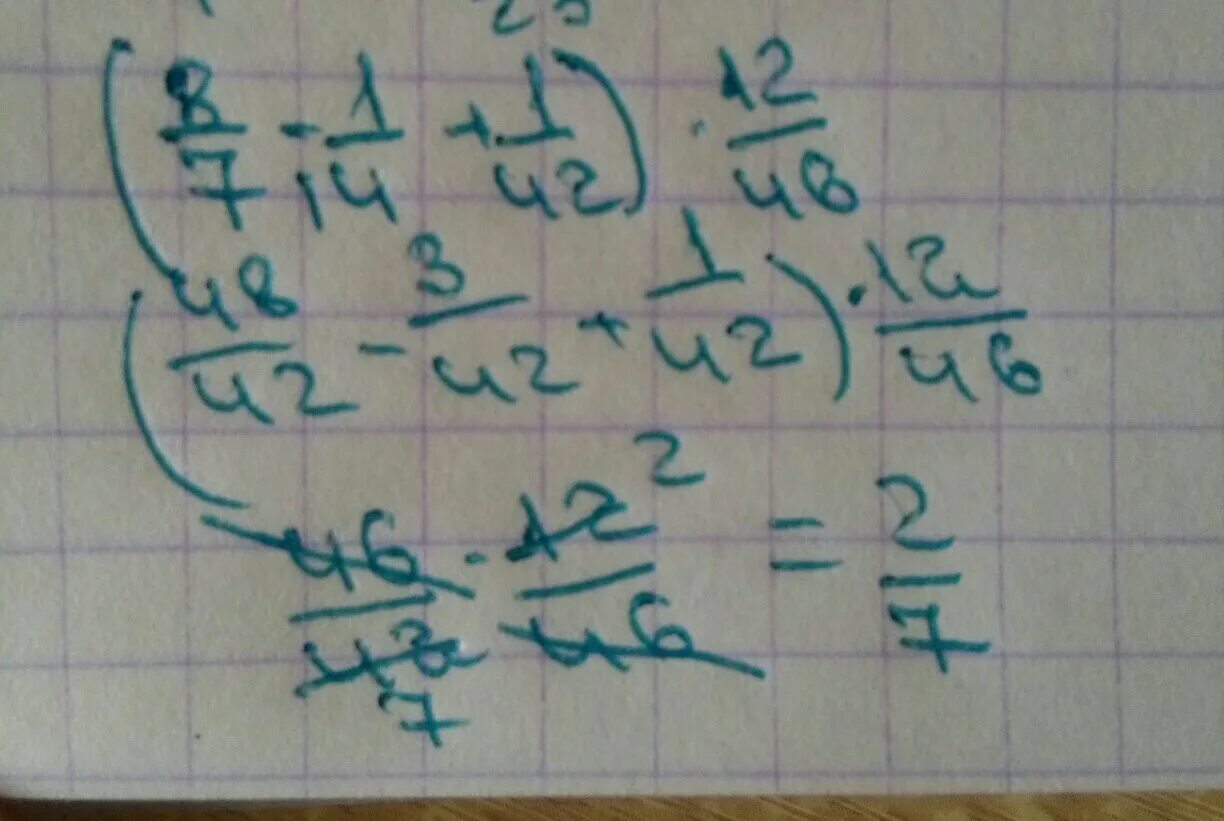 25
(8/7 - 1/14 + 1/42) · 12/46
(48/42 - 3/42 + 1/42) · 12/46
= 46/42 · 12/46 = 2/7
2
7